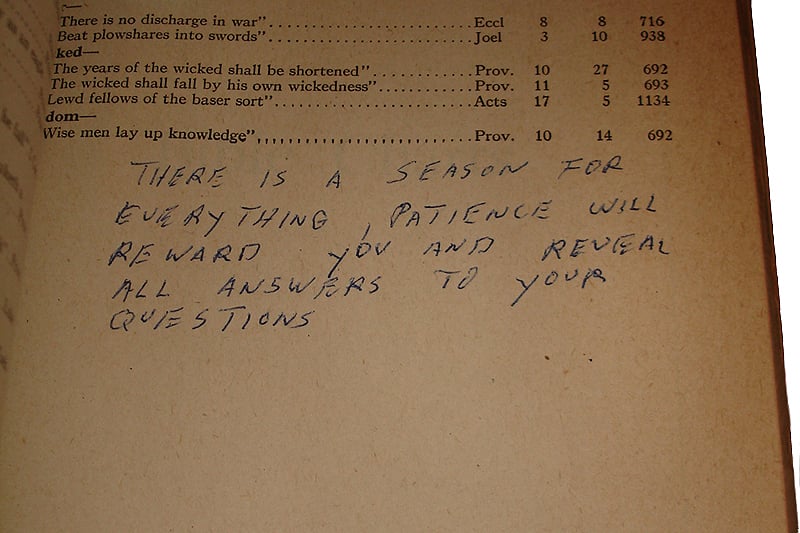 There is no discharge in war"..............................Eccl 8 8 716
Beat plowshares into swords"..............................Joel 3 10 938
ked—
The years of the wicked shall be shortened"..............Prov. 10 27 692
The wicked shall fall by his own wickedness"..............Prov. 11 5 693
Lewd fellows of the baser sort"..............................Acts 17 5 1134
dom—
Wise men lay up knowledge",,,,,,,,,,,,,,,..............Prov. 10 14 692
THERE IS A SEASON FOR
EVERYTHING, PATIENCE WILL
REWARD YOU AND REVEAL
ALL ANSWERS TO YOUR
QUESTIONS